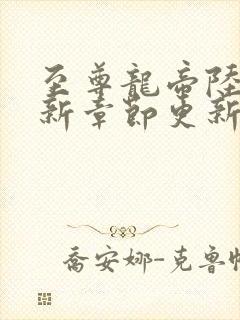 至尊龍帝陸
新章節更新
喬安娜-克魯帕